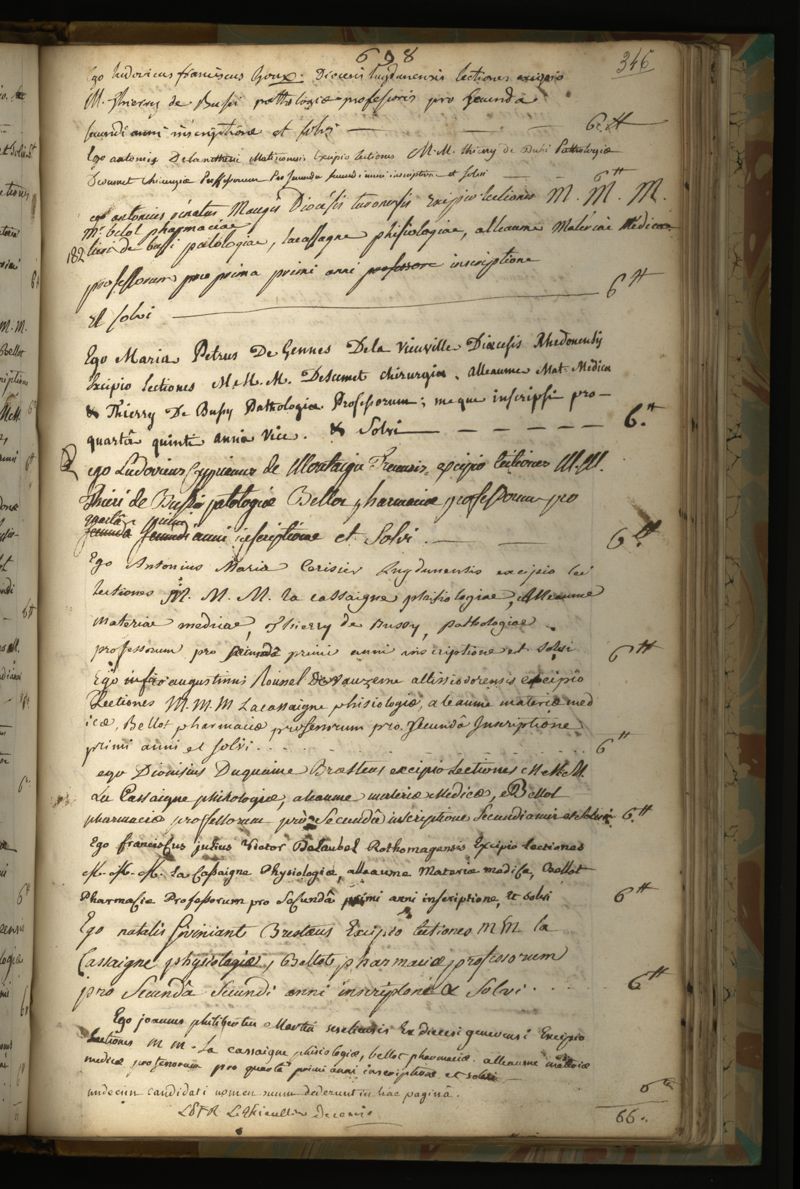 608
346
Ego Ludovicus franciscus Dioecesis lugdunensis lectiones excipio
M. Thierry de Bussi pathologiæ professoris pro secunda
secundi anni inscriptione et solvi — 6.tt
Ego antonius Excipio Lectiones M.M. thiery de Busi Pathologiæ
Desumet Chirurgiæ Professorum Pro secunda secundi anni inscriptione et solvi 6tt
ego antonius renatus Maugis Diocesis turonensis Excipio lectiones M. M. M.
Mr. belot pharmaciae
tieri de bussi patologiae, lacassagne phisiologiae, alleaume Materiae Medicae
182
professorum pro prima primi anni professore inscriptione
Et solvi — 6tt
Ego Maria Petrus De Gennes De la Vieuville Diœcesis Rhedonensis
Excipio lectiones M.M.M. Desumet chirurgiæ, alleaume Mat. Medicæ
& Thierry De Bussy Pathologiæ Professorum; me que inscripsi pro—
quartâ quinti anni vice. & Solvi — — — — — — 6.tt
ego Ludovicus de Montaigu excipio lectiones M.M.
Thieri de Bussi patologiæ Bellot pharmaciæ professorum pro
quarta primi
secunda secundi anni inscriptione et Solvi. — — 6tt
Ego Antonius Maria Cerisier Lugdunensis excipio lec
lectiones M. M. M. la cassaigne phisiologiae, Alleaume
materiae medicae, Thierry de Bussy, pathologiae
professorum pro secunda primi anni inscriptione et solvi 6tt
Ego augustinus Roussel De Vauzesme altissiodorensis excipio
Lectiones M.M.M Lacassaigne phisiologiæ, aleaume materiæ med
icæ, Bellot pharmaciæ professorum pro. secunda Inscriptione
primi anni et solvi . . . . 6tt
ego Dionisius Duquaine excipio Lectiones M.M.M.
La Cassaigne phisiologiæ, aleaume materiæ Medicæ, Bellot
pharmaciæ professorum pro Secundâ inscriptione Secundi anni et solvi 6.tt
Ego franciscus julius Victor Delaubel Rothomagensis Excipio lectiones
M. M. M. La Cassaigne Physiologiæ, alleaume Materiæ medicæ, Bellot
Pharmaciæ Professorum pro Secundâ primi anni inscriptione, et solvi 6tt
Ego natalis Excipio lectiones M M. la
Cassaigne physiologiæ, Bellot, pharmaciæ, professorum
pro Secundâ Secundi anni inscriptione & Solvi . . . 6tt
Ego joannes philibertus Ex dioecesi genevensi Excipio
Lectiones M M. La cassaigne phisiologiæ, bellot pharmaciæ. alleaume materiæ
medicæ professorum pro quartâ primi anni inscriptione et solvi 6tt
undecim candidati nomen suum dederunt in hac paginâ.
Le Thieullier Decanus
66.